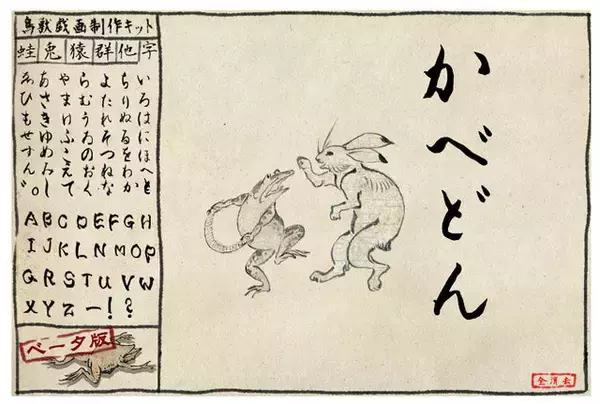 鳥獣戯画制作キット
蛙 兎 猿 群 他 字
いろはにほへと
ちりぬるをわか
よたれそつねな
らむうゐのおく
やまけふこえて
あさきゆめみし
ゑひもせすん゛。
ABCDEFGH
IJKLNMOP
QRSTUVW
XYZー!?
ベータ版
かべどん
全消去